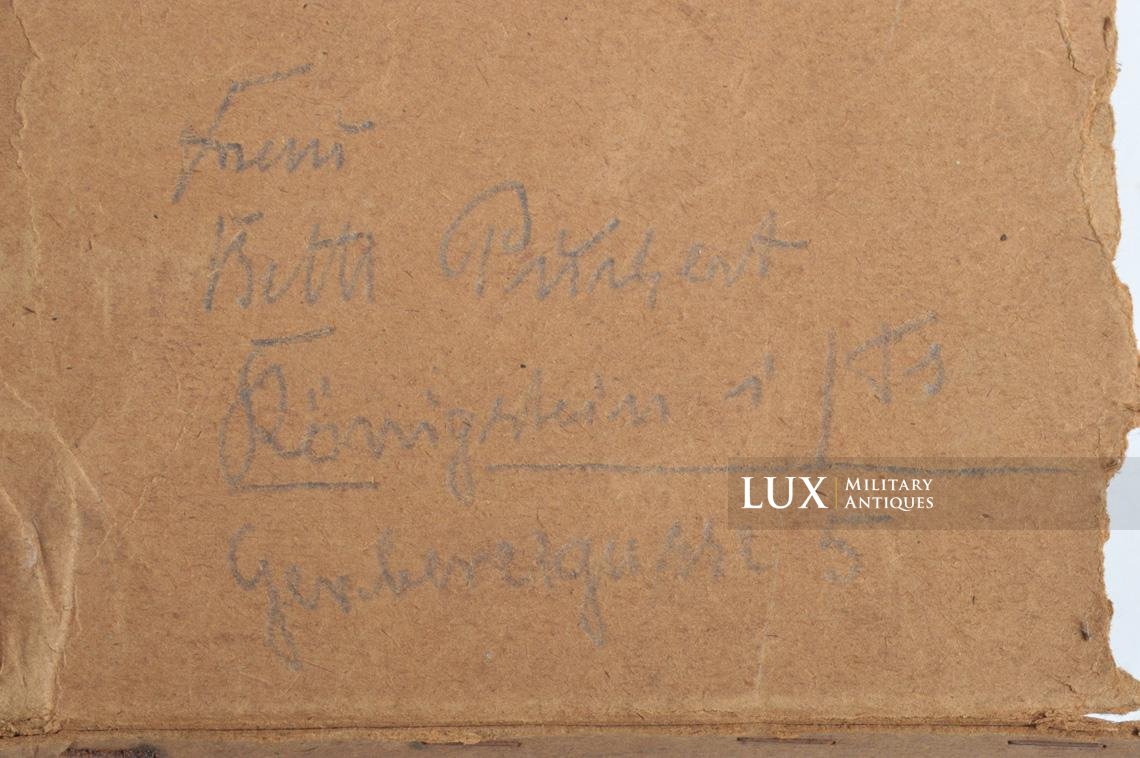 Frau
Betti
Königstein i/Ts
Gerbereigasse 5
LUX MILITARY
ANTIQUES